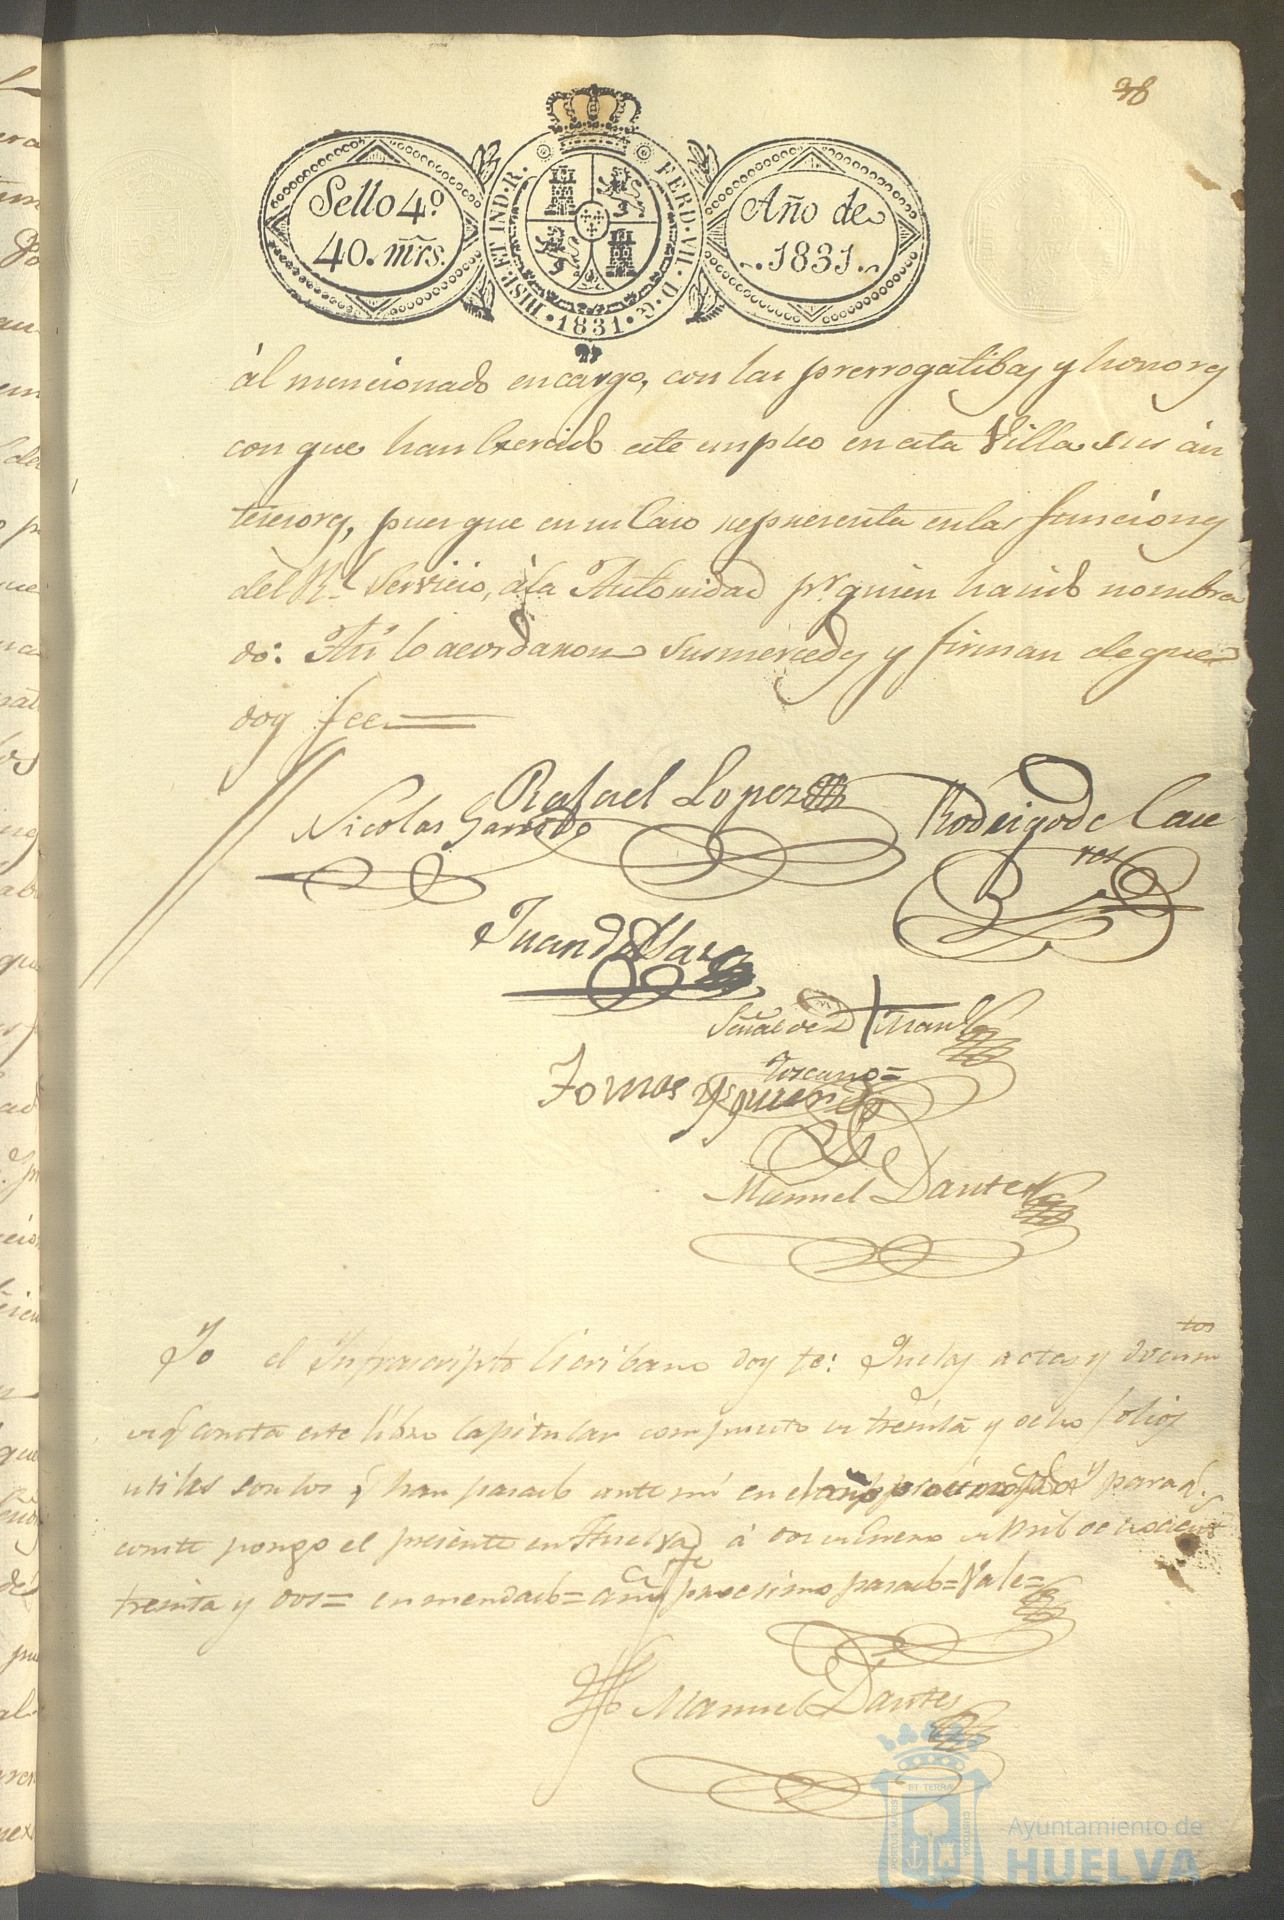 38
Sello 4º
40. mrs.
HISP. ET IND. R. FERD. VII. D. G. 1831.
Año de
1831.
ál mencionado encargo, con las prerrogatibas y honores
con que han Exercido este empleo en esta Villa sus an
tesesores, pues que en su Caso representa en las funciones
del Rl. Servicio, á la Autoridad pr. quien ha sido nombra
do: Asi lo acordaron sus mercedes y firman de que
doy fee
Rafael Lopez
Nicolas Garrido
Rodrigo de Cace
res
Juan de
Señal de D
Toscano=
Tomas
Manuel Dantes
tos
Yo el Infrascripto Escribano doy fe: Que las actas y docum
de q consta este libro Capitular compuesto de treinta y ocho folios
utiles son los q han pasado ante mi en el año procsimo pasado y para q.
conste pongo el presente en Huelva á dos de Enero de mil ochocientos
treinta y dos= enmendado= año procsimo pasado= Vale=
Manuel Dantes
PORTUS MARIS ET TERRAE CUSTODIA
Ayuntamiento de
HUELVA